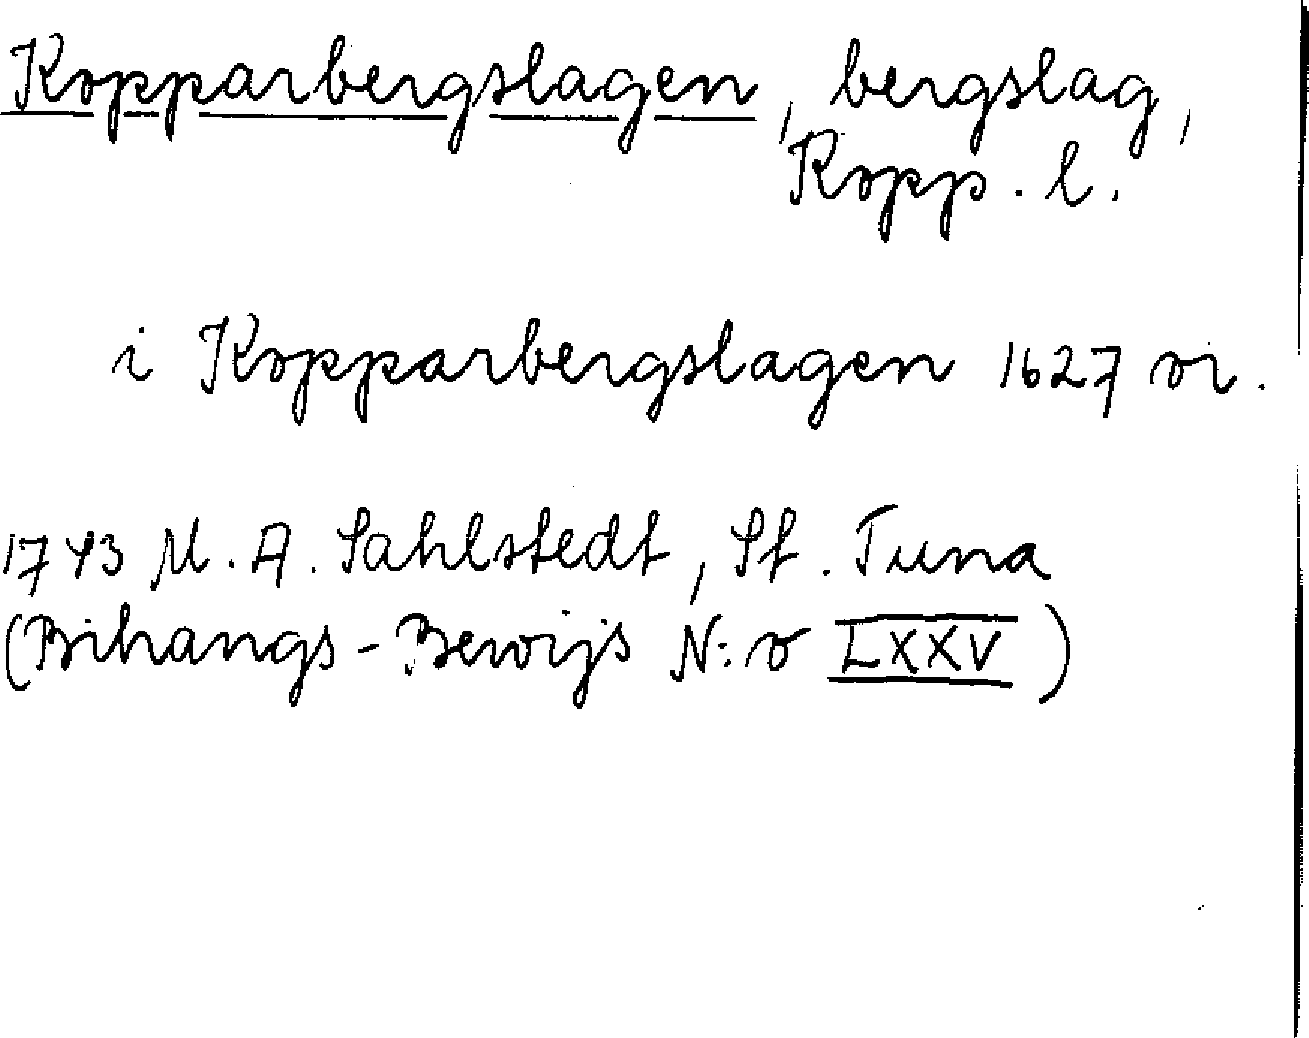 Kopparbergslagen, bergslag,
Kopp. l.
i Kopparbergslagen 1627 or.
1743 M. A. Sahlstedt, St. Tuna
(Bihangs-Bewijs N:o LXXV)